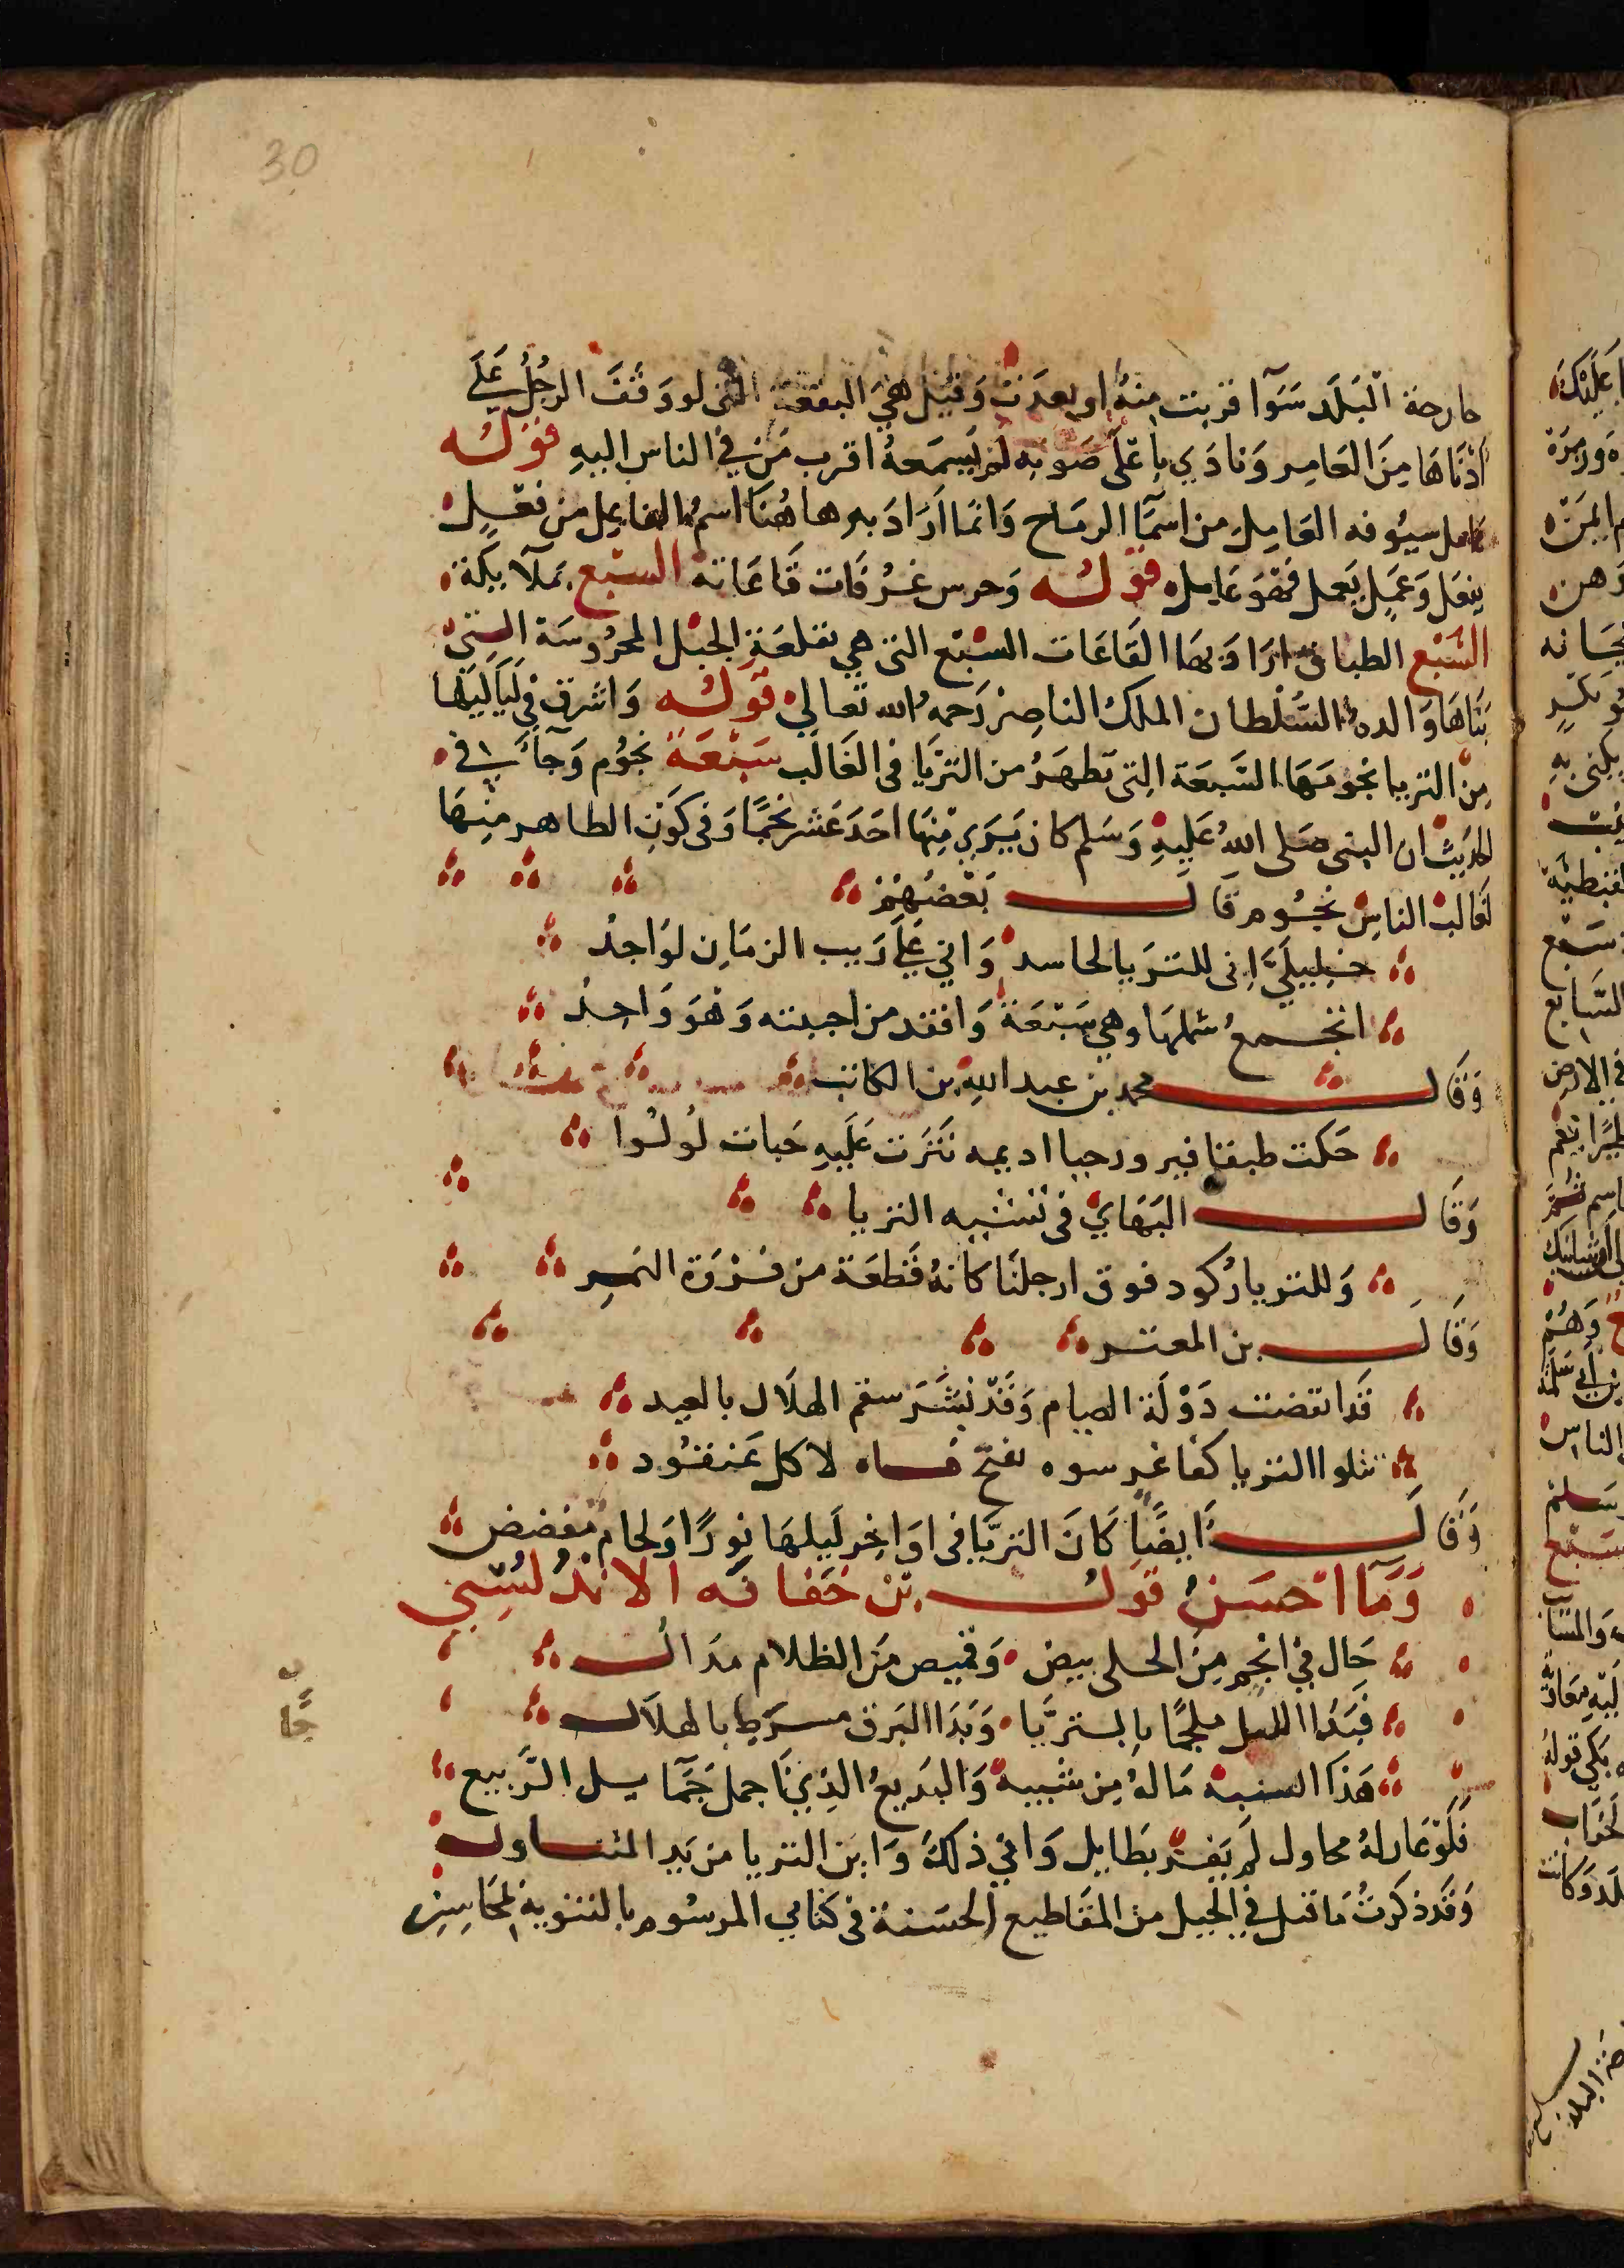 30
خارجة الْبَلَد سَوآا قربت منهُ او بعدَت وَقيْل هيَ البقعة التى لو وَقَفَ الرجُلُ عَلَى
اَدْنَاهَا مِنَ العَامِر وَنادَي باعْلَى صَوتِه لَمْ يَسمَعهُ اقرب مَنْ في الناس اليهِ قَوْلُه
عامل سيُوفه العَامِل من اسمآ الرمَاح وَانمَا اَرَادَ به هاهُنَا اسمُ الفاعِل من فعَل
يفعَل وَعَمِل يَعمل فَهُوَ عَامِل قَوْلُه وَحرس غُرفَات قَاعَاته السَبْع بمَلآيكة
السَّبْع الطباق ارَادَ بهَا القَاعَات السَبْع التى هي بقلعَةِ الجبَل المحرُوسَة التِيْ
بَنَاهَا وَالده السُّلْطان الملك الناصِرْ رَحمهُ الله تعَالي قَوْلُه وَاشرق في لَيَاليْهَا
مِنْ الثريا نجومَهَا السَّبعَة التِى تظهَرُ من الثرَيَا فى الغَالب سَبْعَة نجُوْم وَجآئَ في
الحَديْث ان النبى صَلى اللهُ عَليهِ وَسَلم كان يَرَي مِنْهَا احَدَ عَشر نجْمًا وَفى كَوْن الظاهر مِنْهَا
لغَالب الناس نجُوم قَالَ بَعْضُهُمْ
خَلِيلَيَّ اِنى للثرَيا لحاسد وَاني عَلَى رَيب الزمَان لوَاجدُ
انجمعُ شملهَا وهي سَبْعَة وَافقد من احببته وَهْوَ وَاحِدُ
وَقَالَ محمد بن عبد الله بن الكاتب
حَكت طبقا فيروزجيا اديمه نَثَرت عَليهِ حَبات لُولُوا
وَقَالَ البَهَايْ فى تشبيه الثريا
وَللثريا رُكود فوق ارجلنَا كانهُ قَطعَة من فَرْوَة النَمِر
وَقَالَ بن المعتز
قَد انقضت دَوْلَة الصيام وَقَدْ بَشَرَ سقم الهلَال بالعيد
تتلوا الثريا كفاغر سره يفتَح فاه لاكل عَنقُود
وَقَالَ اَيضًا كَانَ الثريَّا فى اوَاخِر لَيلهَا نورًا وَلحام مفضض
وَمَا احْسَنُ قَوْلُ بْن خَفَاجَه الانْدُلُسِي
حَال في انْجُم مِنَ الحلى بيض وَقميص مَن الظلام مدَالُ
فبَدَا الليل ملجمًا بالثريَّا وَبَدَا البَرق مسرَجا بالهلَال
هَذَا التشبيه مَا لهُ مِن شبيهْ وَالبَديعُ الذِيْ نَا جمل جَمَا يسل الرَّبيع
فَلَوْ عَارلهُ محاول لَم يَفُز بَطَايل وَاني ذلكَ وَابن الثريا من يَد المتناول
وَقَد ذكَرتُ مَا قيل في الجيل من المقَاطيع الحسَنة فى كتابي المرسُوم بالتنويهْ لمحَاسِن